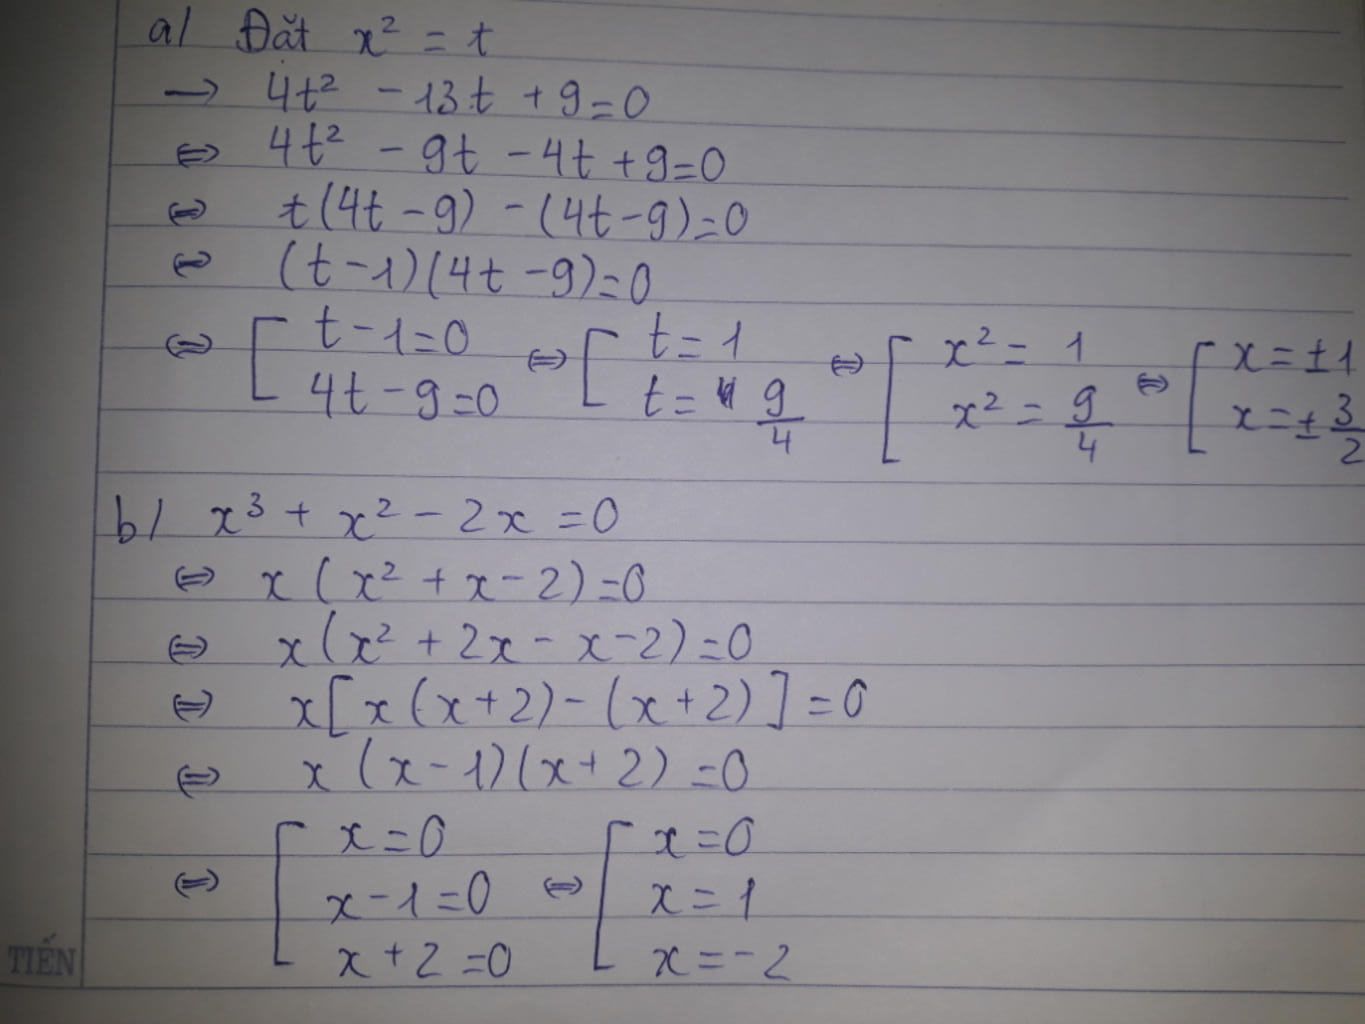 a/ Đặt x² = t
→ 4t² - 13t + 9 = 0
⇔ 4t² - 9t - 4t + 9 = 0
⇔ t(4t - 9) - (4t - 9) = 0
⇔ (t - 1)(4t - 9) = 0
⇔ [ t - 1 = 0 ⇔ [ t = 1 ⇔ [ x² = 1 ⇔ [ x = ±1
4t - 9 = 0 t = 9/4 x² = 9/4 x = ± 3/2
b/ x³ + x² - 2x = 0
⇔ x (x² + x - 2) = 0
⇔ x (x² + 2x - x - 2) = 0
⇔ x [ x (x + 2) - (x + 2) ] = 0
⇔ x (x - 1)(x + 2) = 0
⇔ [ x = 0 ⇔ [ x = 0
x - 1 = 0 x = 1
x + 2 = 0 x = -2
TIẾN